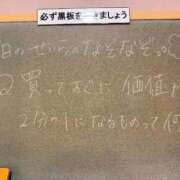 必ず黒板を
ましょう
日のせいかのなぞなぞ。
買ってすぐに価値が
2分の1になるものって何